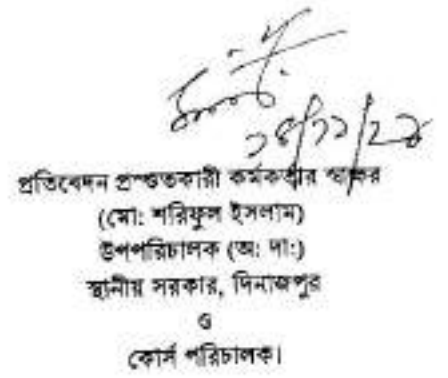 প্রতিবেদন প্রস্তুতকারী কর্মকর্তার স্বাক্ষর
(মো: শরিফুল ইসলাম)
উপপরিচালক (অ: দা:)
স্থানীয় সরকার, দিনাজপুর
ও
কোর্স পরিচালক।